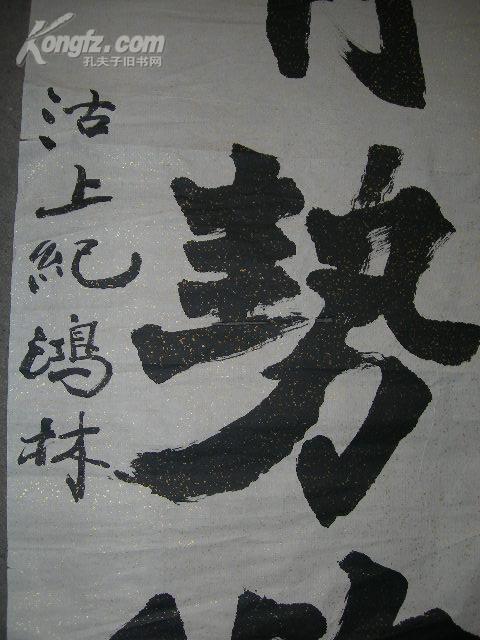 Kongfz.com
孔夫子旧书网
勢
沽上紀鴻林